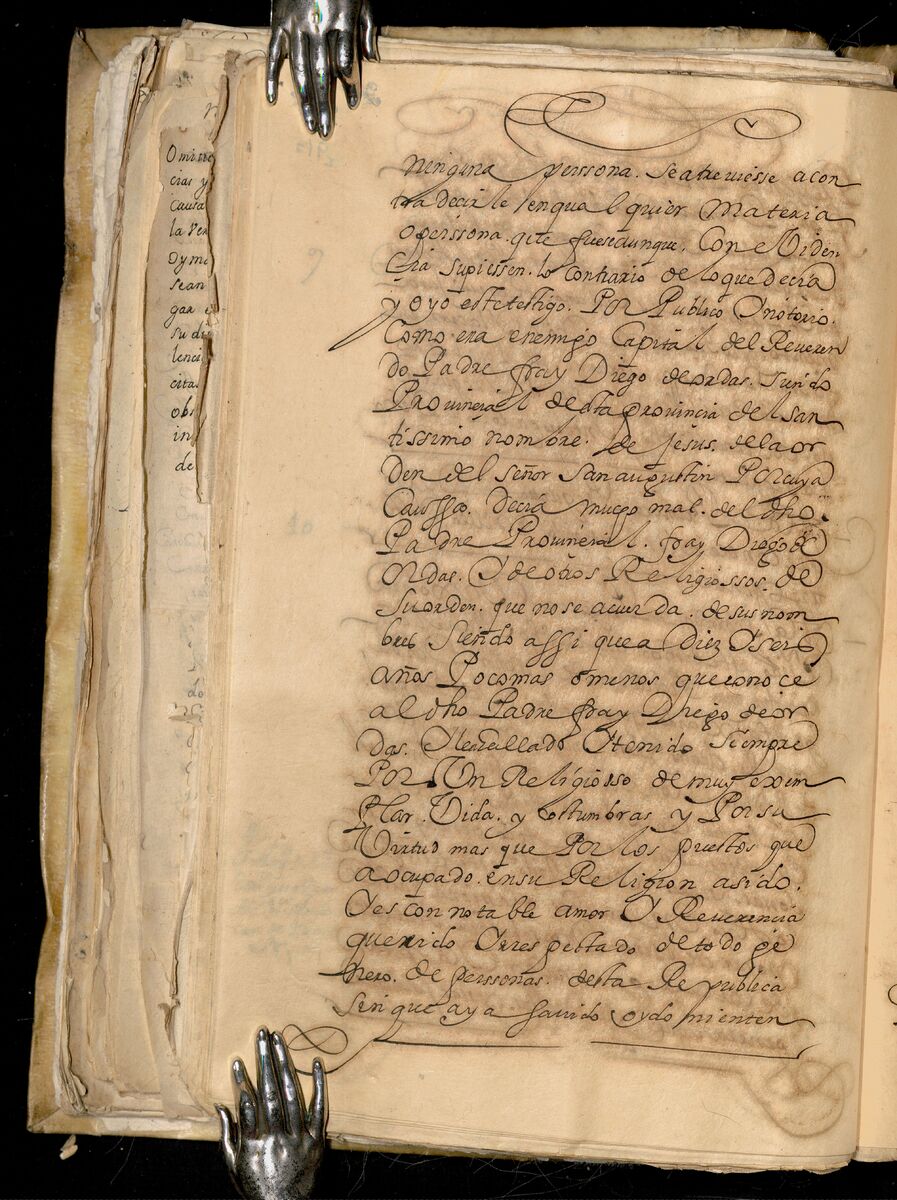 Omitie
cias y
causa
la Per
dyma
sean
gar e
su di
lenci
cita
obs
in
de
ninguna perssona. Se atreviesse acon
tradecirle enqual quier Materia
operssona. que fueseaunque. Con eViden
cia supiessen. lo contrario de loque decia
y oyo estetestigo. Por Publico Y notorio.
Como era enemigo Capital del Reveren
do Padre fray Diego deordas. siendo
Provincial desta provincia del san
tissimo nombre. de Jesus. dela or
den del señor San augustin Porcuya
Caussa. Decia mucho mal. del dho.
Padre Provincial. fray Diego de
Ordas. Y de otros Religiossos. de
Su orden. que no se acuerda. de sus nom
bres Siendo assi que a Diez Y seis
años Pocomas omenos queconoce
al dho Padre fray Diego deor
das. Yleahallado Y tenido siempre
Por Un Religiosso de muy exem
plar. Vida. y costumbras y Por su
Virtud mas que Por los puestos que
a ocupado. ensu Religion asido.
Y es con notable amor Y Reverencia
querido Y rrespectado de todo ge
nero. de perssonas. desta Republica
sin que aya savido oydo nienten